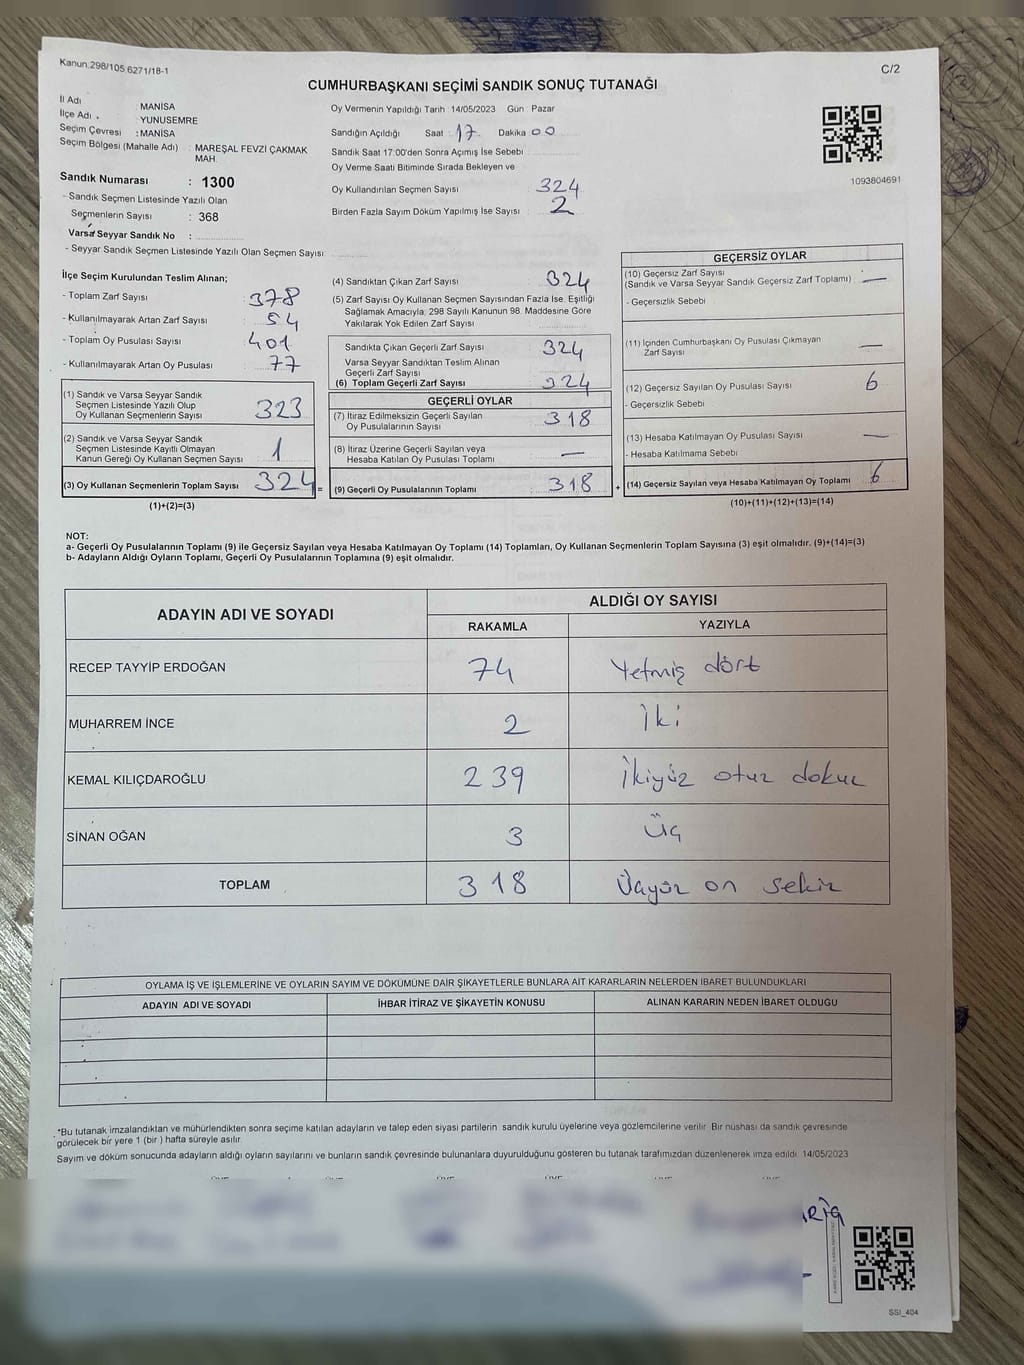 Kanun.298/105.6271/18-1
C/2
CUMHURBAŞKANI SEÇİMİ SANDIK SONUÇ TUTANAĞI
İl Adı : MANİSA
İlçe Adı : YUNUSEMRE
Seçim Çevresi : MANİSA
Seçim Bölgesi (Mahalle Adı) : MAREŞAL FEVZİ ÇAKMAK
MAH.
Sandık Numarası : 1300
- Sandık Seçmen Listesinde Yazılı Olan
Seçmenlerin Sayısı : 368
Varsa Seyyar Sandık No :
- Seyyar Sandık Seçmen Listesinde Yazılı Olan Seçmen Sayısı:
Oy Vermenin Yapıldığı Tarih : 14/05/2023 Gün : Pazar
Sandığın Açıldığı Saat : 17 Dakika 00
Sandık Saat 17:00'den Sonra Açımış İse Sebebi :
Oy Verme Saati Bitiminde Sırada Bekleyen ve
Oy Kullandırılan Seçmen Sayısı : 324
Birden Fazla Sayım Döküm Yapılmış İse Sayısı : 2
1093804691
İlçe Seçim Kurulundan Teslim Alınan;
- Toplam Zarf Sayısı : 378
- Kullanılmayarak Artan Zarf Sayısı : 54
- Toplam Oy Pusulası Sayısı : 401
- Kullanılmayarak Artan Oy Pusulası : 77
(1) Sandık ve Varsa Seyyar Sandık
Seçmen Listesinde Yazılı Olup
Oy Kullanan Seçmenlerin Sayısı 323
(2) Sandık ve Varsa Seyyar Sandık
Seçmen Listesinde Kayıtlı Olmayan
Kanun Gereği Oy Kullanan Seçmen Sayısı 1
(3) Oy Kullanan Seçmenlerin Toplam Sayısı 324 =
(1)+(2)=(3)
(4) Sandıktan Çıkan Zarf Sayısı : 324
(5) Zarf Sayısı Oy Kullanan Seçmen Sayısından Fazla İse, Eşitliği
Sağlamak Amacıyla, 298 Sayılı Kanunun 98. Maddesine Göre
Yakılarak Yok Edilen Zarf Sayısı
Sandıkta Çıkan Geçerli Zarf Sayısı 324
Varsa Seyyar Sandıktan Teslim Alınan
Geçerli Zarf Sayısı
(6) Toplam Geçerli Zarf Sayısı 324
GEÇERLİ OYLAR
(7) İtiraz Edilmeksizin Geçerli Sayılan
Oy Pusulalarının Sayısı 318
(8) İtiraz Üzerine Geçerli Sayılan veya
Hesaba Katılan Oy Pusulası Toplamı —
(9) Geçerli Oy Pusulalarının Toplamı 318 +
GEÇERSİZ OYLAR
(10) Geçersiz Zarf Sayısı
(Sandık ve Varsa Seyyar Sandık Geçersiz Zarf Toplamı) —
- Geçersizlik Sebebi
(11) İçinden Cumhurbaşkanı Oy Pusulası Çıkmayan
Zarf Sayısı —
(12) Geçersiz Sayılan Oy Pusulası Sayısı 6
- Geçersizlik Sebebi
(13) Hesaba Katılmayan Oy Pusulası Sayısı —
- Hesaba Katılmama Sebebi
(14) Geçersiz Sayılan veya Hesaba Katılmayan Oy Toplamı 6
(10)+(11)+(12)+(13)=(14)
NOT:
a- Geçerli Oy Pusulalarının Toplamı (9) ile Geçersiz Sayılan veya Hesaba Katılmayan Oy Toplamı (14) Toplamları, Oy Kullanan Seçmenlerin Toplam Sayısına (3) eşit olmalıdır. (9)+(14)=(3)
b- Adayların Aldığı Oyların Toplamı, Geçerli Oy Pusulalarının Toplamına (9) eşit olmalıdır.
ADAYIN ADI VE SOYADI
ALDIĞI OY SAYISI
RAKAMLA YAZIYLA
RECEP TAYYİP ERDOĞAN 74 Yetmiş dört
MUHARREM İNCE 2 İki
KEMAL KILIÇDAROĞLU 239 İkiyüz otuz dokuz
SİNAN OĞAN 3 Üç
TOPLAM 318 Üçyüz on sekiz
OYLAMA İŞ VE İŞLEMLERİNE VE OYLARIN SAYIM VE DÖKÜMÜNE DAİR ŞİKAYETLERLE BUNLARA AİT KARARLARIN NELERDEN İBARET BULUNDUKLARI
ADAYIN ADI VE SOYADI İHBAR İTİRAZ VE ŞİKAYETİN KONUSU ALINAN KARARIN NEDEN İBARET OLDUĞU
*Bu tutanak imzalandıktan ve mühürlendikten sonra seçime katılan adayların ve talep eden siyasi partilerin sandık kurulu üyelerine veya gözlemcilerine verilir. Bir nüshası da sandık çevresinde
görülecek bir yere 1 (bir ) hafta süreyle asılır.
Sayım ve döküm sonucunda adayların aldığı oyların sayılarını ve bunların sandık çevresinde bulunanlara duyurulduğunu gösteren bu tutanak tarafımızdan düzenlenerek imza edildi. 14/05/2023
SSI_404